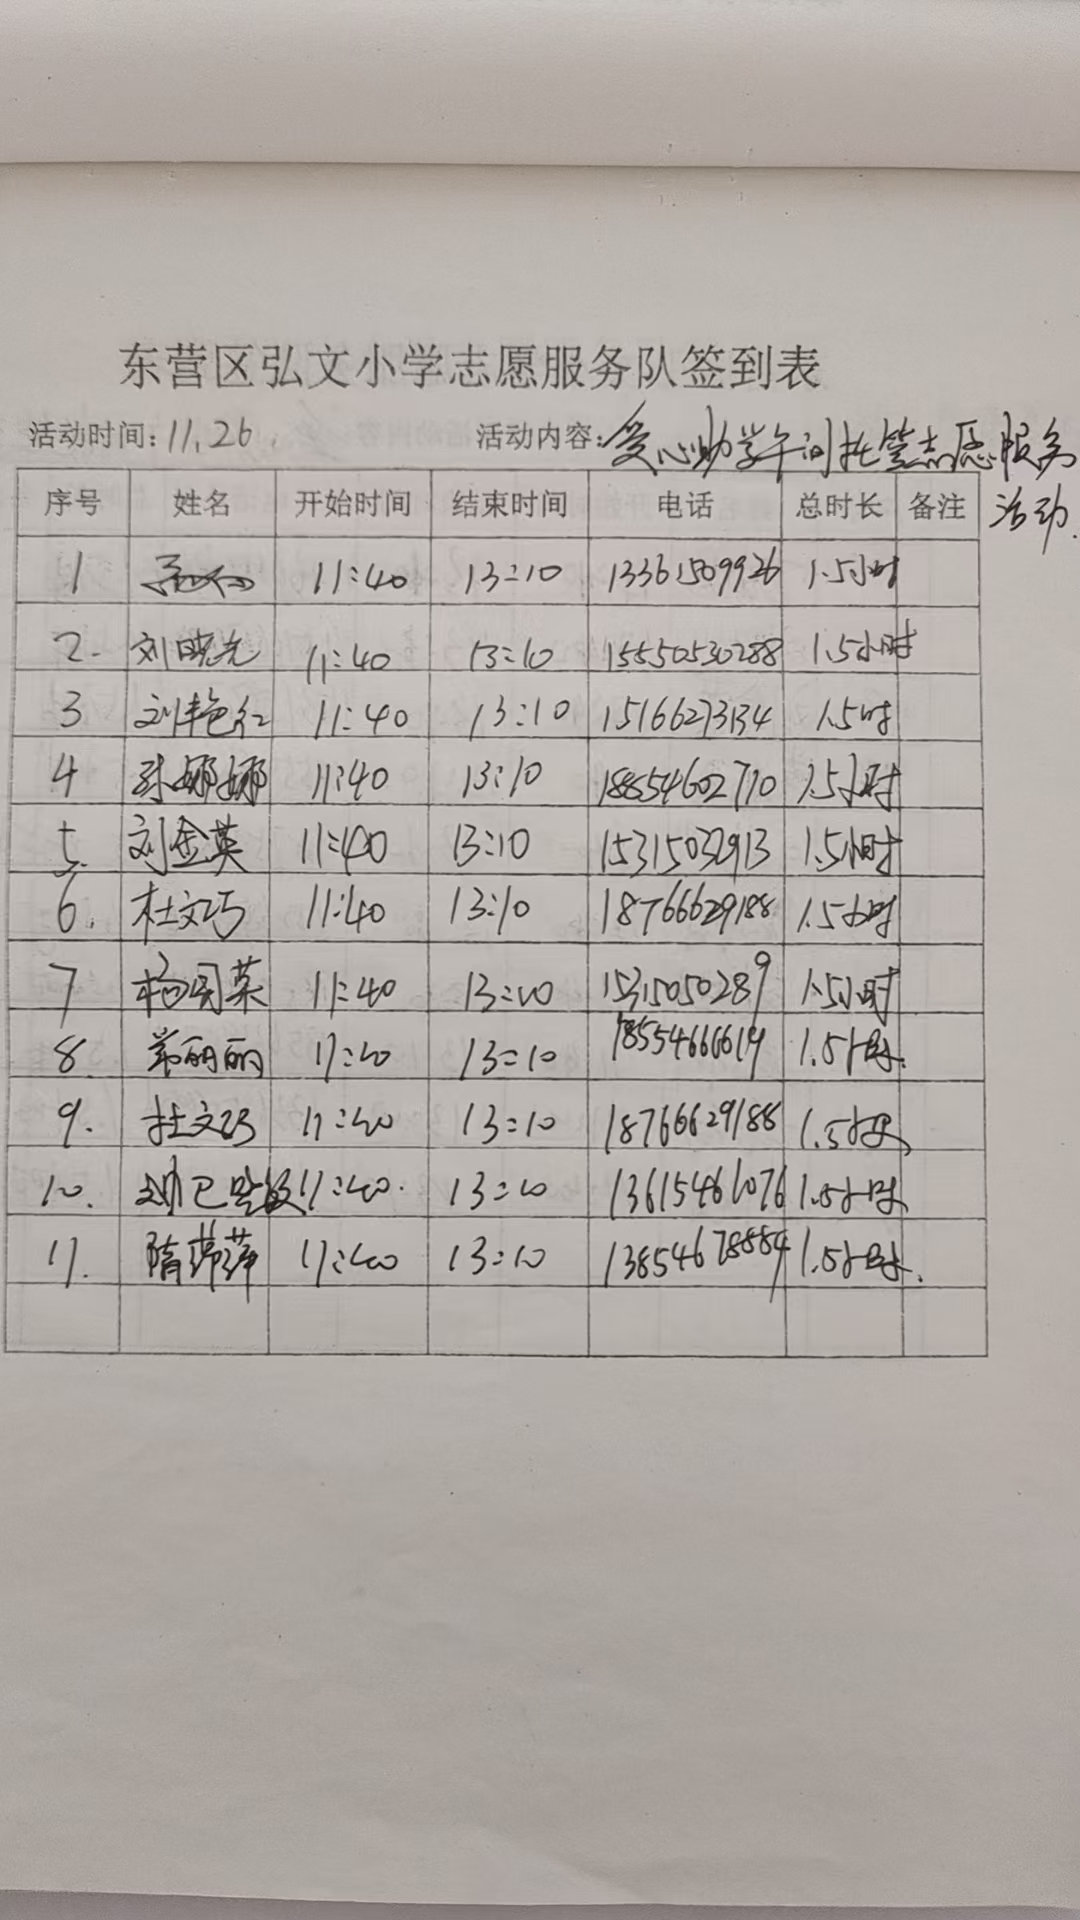 东营区弘文小学志愿服务队签到表
活动时间：11.26. 活动内容：爱心助学午间托管志愿服务
活动.
序号 姓名 开始时间 结束时间 电话 总时长 备注
1 11:40 13:10 13361509926 1.5小时
2. 刘晓光 11:40 13:10 15550530288 1.5小时
3 刘艳红 11:40 13:10 15166273134 1.5时
4 孙娜娜 11:40 13:10 18854602710 1.5小时
5. 刘金英 11:40 13:10 15315032913 1.5小时
6. 杜文巧 11:40 13:10 18766629188 1.5小时
7 11:40 13:10 15315050289 1.5小时
8 丽丽 11:40 13:10 18554666619 1.5小时.
9. 杜文巧 11:40 13:10 18766629188 1.5小时
10. 11:40. 13:10 13615461076 1.5小时
11. 隋萍萍 11:40 13:10 13854678884 1.5小时.